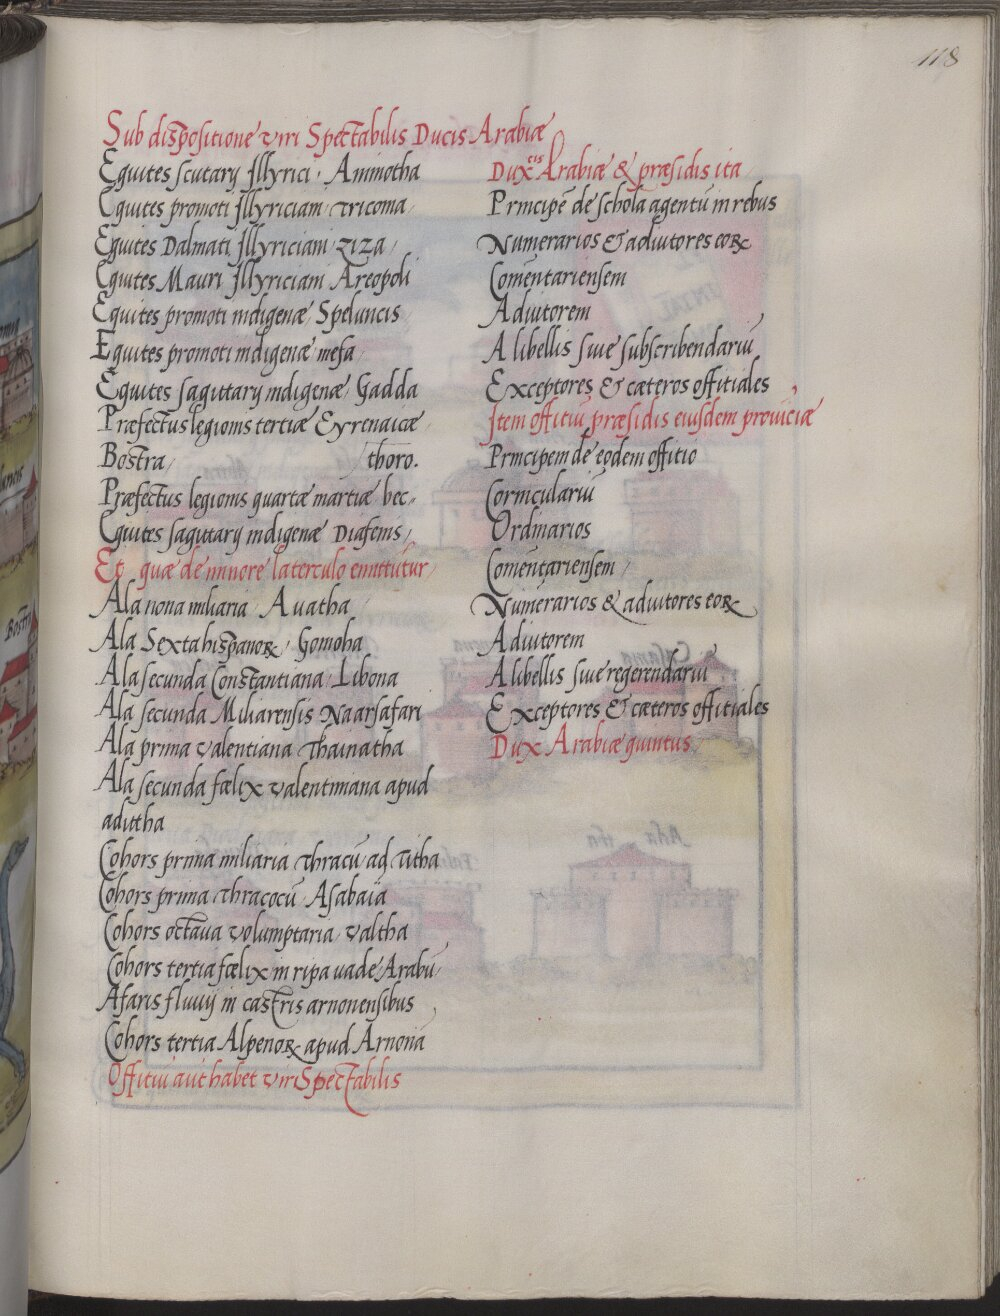 118
Sub dispositione viri Spectabilis Ducis Arabiæ
Equites scutarij Illyrici Animotha
Equites promoti Illyriciani tricoma
Equites Dalmati Illyriciani ziza
Equites Mauri Illyriciani Areopoli
Equites promoti indigenæ Speluncis
Equites promoti indigenæ mefa
Equites sagittarij indigenæ Gadda
Præfectus legionis tertiæ Eyrenaicæ
Bostra thoro.
Præfectus legionis quartæ martiæ bec
Equites sagittarij indigenæ Diafenis
Et quæ de minore laterculo emittūtur
Ala nona miliaria Auatha
Ala Sexta hispanoꝝ Gomoha
Ala secunda Constantiana Libona
Ala secunda Miliarensis Naarsafari
Ala prima valentiana thainatha
Ala secunda fœlix valentiniana apud
aditha
Cohors prima miliaria thracū ad titha
Cohors prima thracocū Asabaia
Cohors octaua volumptaria valtha
Cohors tertia fœlix in ripa uade Arabū
Afaris fluuij in castris arnonensibus
Cohors tertia Alpenoꝝ apud Arnona
Offitiū aūt habet viri Spectabilis
Duxcis Arabiæ & præsidis ita
Principē de schola agentū in rebus
Numerarios & adiutores eoꝝ
Comentariensem
Adiutorem
A libellis siue subscribendariū
Exceptores & cæteros offitiales
Item offitiū præsidis eiusdem prouīciæ
Principem de eodem offitio
Corniculariū
Ordinarios
Comentariensem
Numerarios & adiutores eoꝝ
Adiutorem
A libellis siue regerendariū
Exceptores & cæteros offitiales
Dux Arabiæ quintus